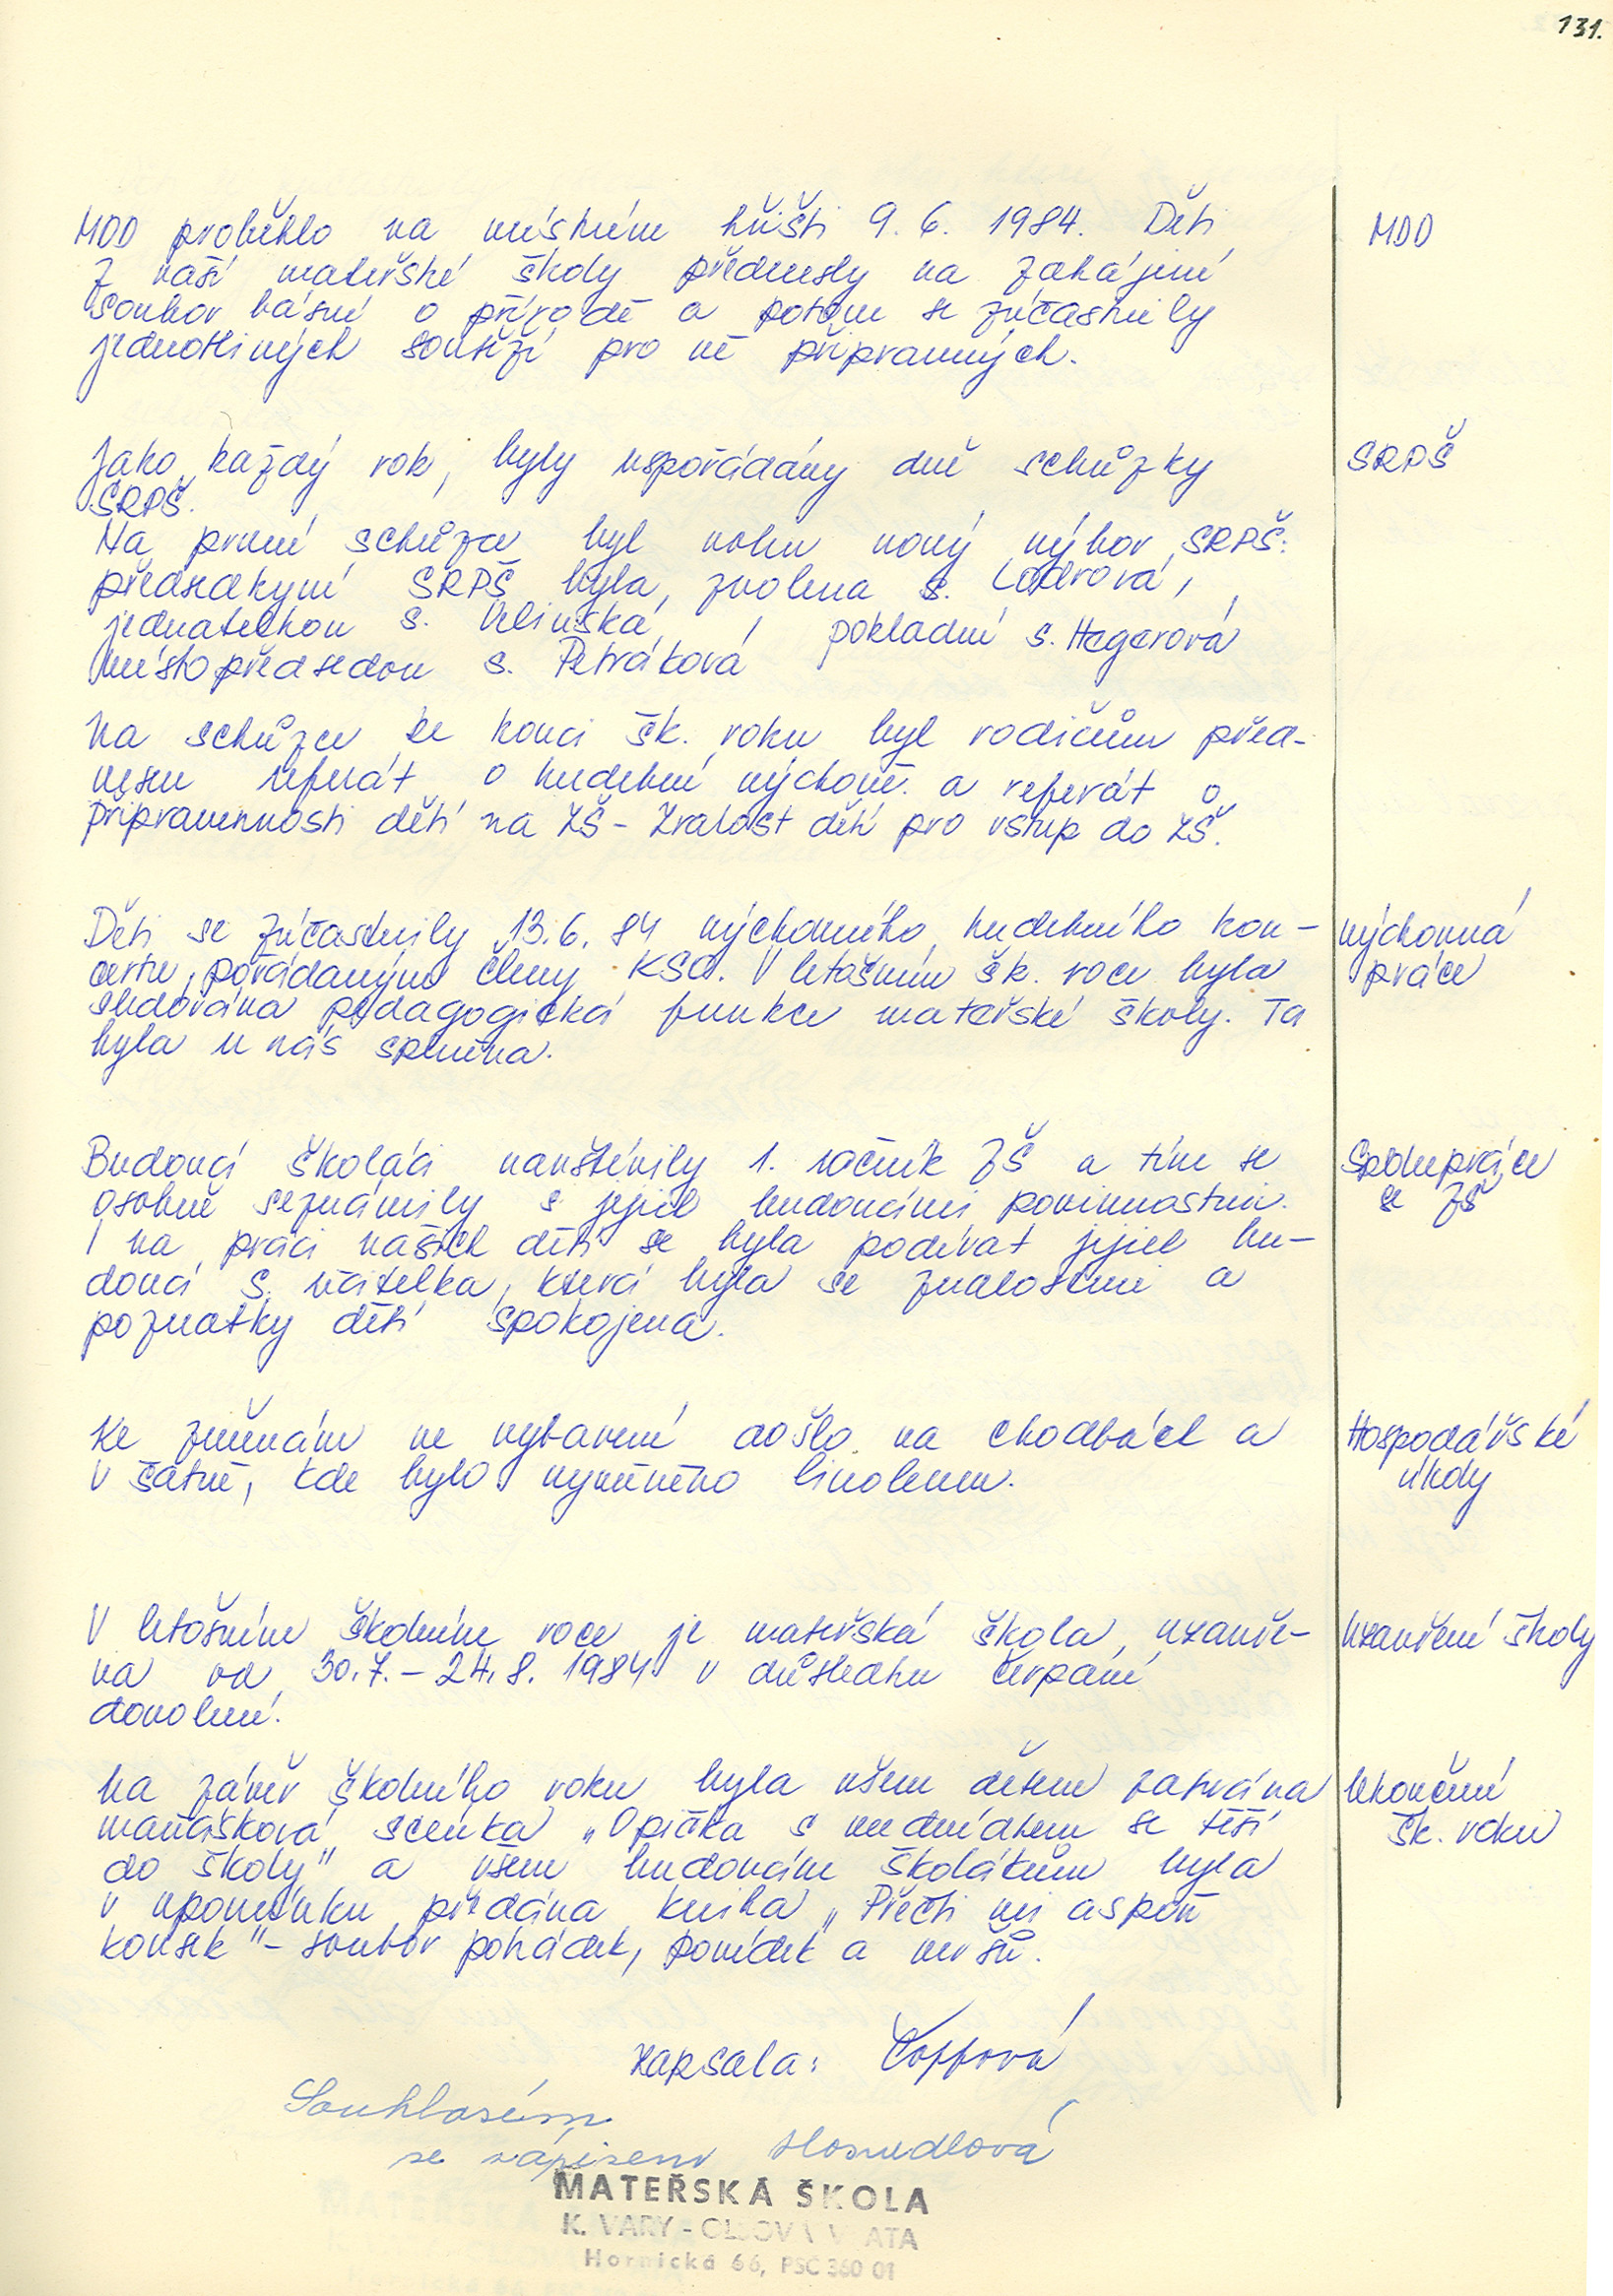 131.
MDD proběhlo na místním hřišti 9. 6. 1984. Děti
z naší mateřské školy přednesly na zahájení
soubor básní o přírodě a potom se zúčastnily
jednotlivých soutěží pro ně připravených.
MDD
Jako každý rok, byly uspořádány dvě schůzky
SRPŠ.
SRPŠ
Na první schůzce byl volen nový výbor SRPŠ:
předsedkyní SRPŠ byla zvolena s. Lodrová,
jednatelkou s. Velinská, pokladní s. Hegerová
místopředsedou s. Petráková
Na schůzce ke konci šk. roku byl rodičům před-
nesen referát o hudební výchově. a referát o
připravennosti dětí na ZŠ - Zralost dětí pro vstup do ZŠ.
Děti se zúčastnily 13. 6. 84 výchovného hudebního kon-
certu, pořádaným členy KSO. V letošním šk. roce byla
sledována pedagogická funkce mateřské školy. Ta
byla u nás splněna.
výchovná
práce
Budoucí školáci navštívily 1. ročník ZŠ a tím se
osobně seznámily s jejich budoucími povinnostmi.
I na práci našich dětí se byla podívat jejich bu-
doucí s. učitelka, která byla se znalostmi a
poznatky dětí spokojena.
Spolupráce
se ZŠ
Ke změnám ve vybavení došlo na chodbách a
v šatně, kde bylo vyměněno linoleum.
Hospodářské
úkoly
V letošním školním roce je mateřská škola uzavře-
na od 30. 7. - 24. 8. 1984 v důsledku čerpání
dovolené.
Uzavření školy
Na závěr školního roku byla všem dětem zahrána
maňásková scénka „Opička s medvídkem se těší
do školy" a všem budoucím školákům byla
v upomínku předána kniha „Přečti mi aspoň
kousek" - soubor pohádek, povídek a veršů.
Ukončení
šk. roku
Zapsala: Toffová
Souhlasím
se zápisem Hosnedlová
MATEŘSKÁ ŠKOLA
K. VARY - OLŠOVÁ VRATA
Hornická 66, PSČ 360 01